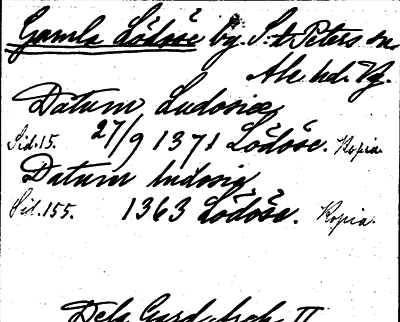 Gamla Lödöse by. S:t Peters sn.
Ale hd. Vg.
Datum Ludosie
Sid. 15. 27/9 1371 Lödöse. Kopia.
Datum ludosie
Sid. 155. 1363 Lödöse. Kopia.
Dela Gard. Arch. II